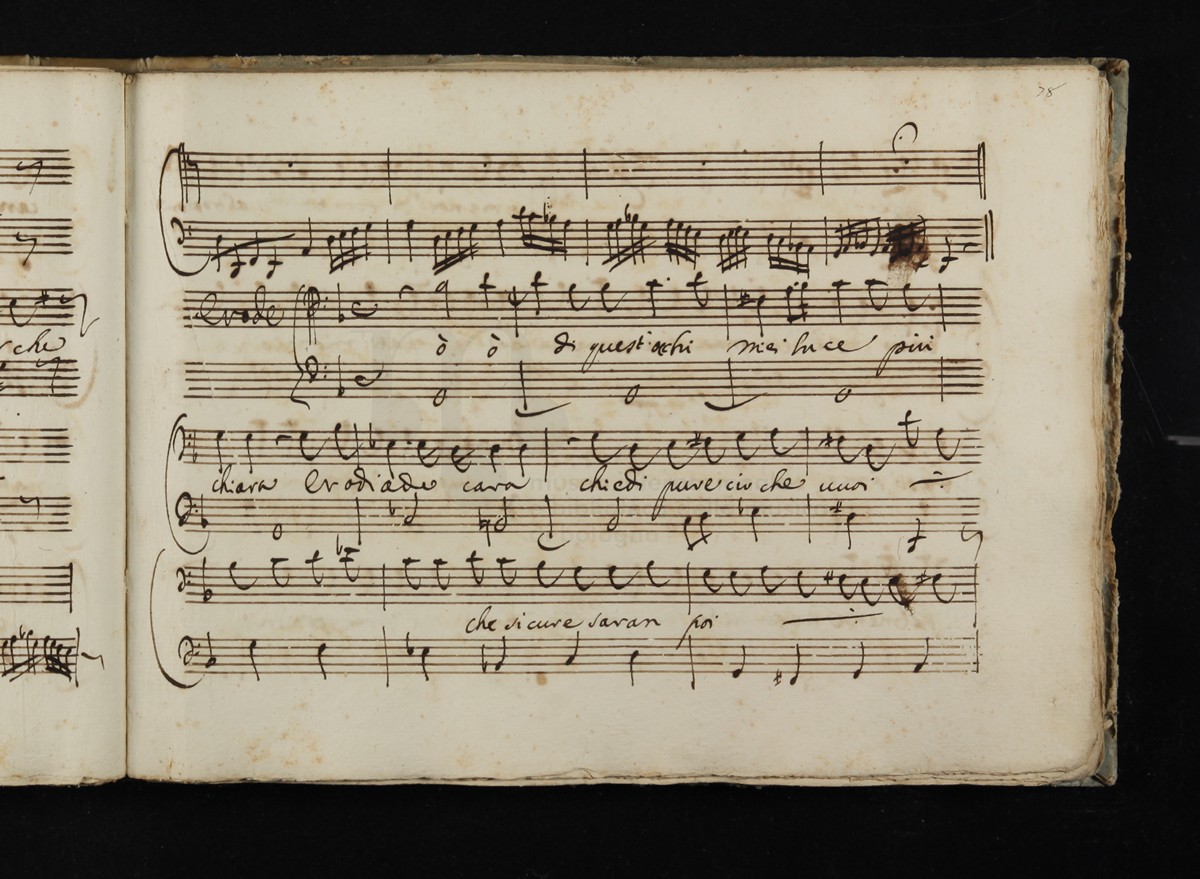 38
Erode
che
ò ò di quest'ochi miei luce piu
chiara Erodiade cara chiedi pure cio che vuoi
che sicure saran poi